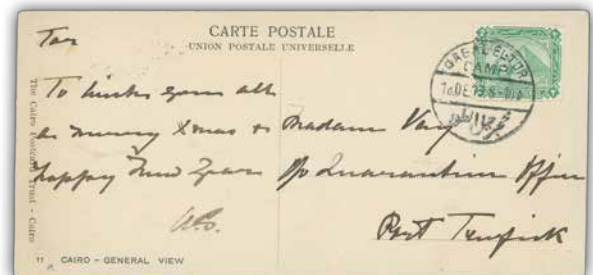 CARTE POSTALE
UNION POSTALE UNIVERSELLE
Tor
To wish you all
a merry Xmas &
happy New Year
Madam
c/o Quarantine Office
Port Tewfick
CAMP
The Cairo Postcard Trust - Cairo
11 CAIRO - GENERAL VIEW